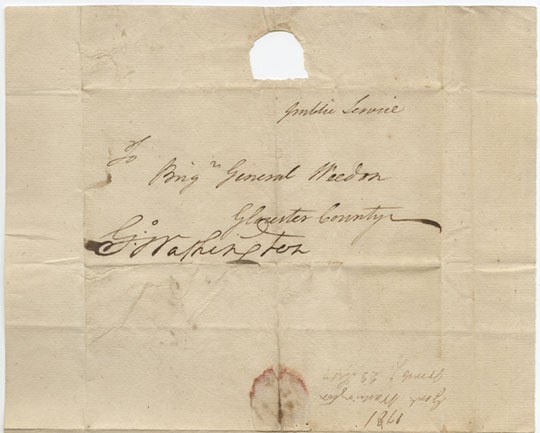 Public Service
To
Brigr General Weedon
Gloster County
Go: Washington
Genl Washington
1781